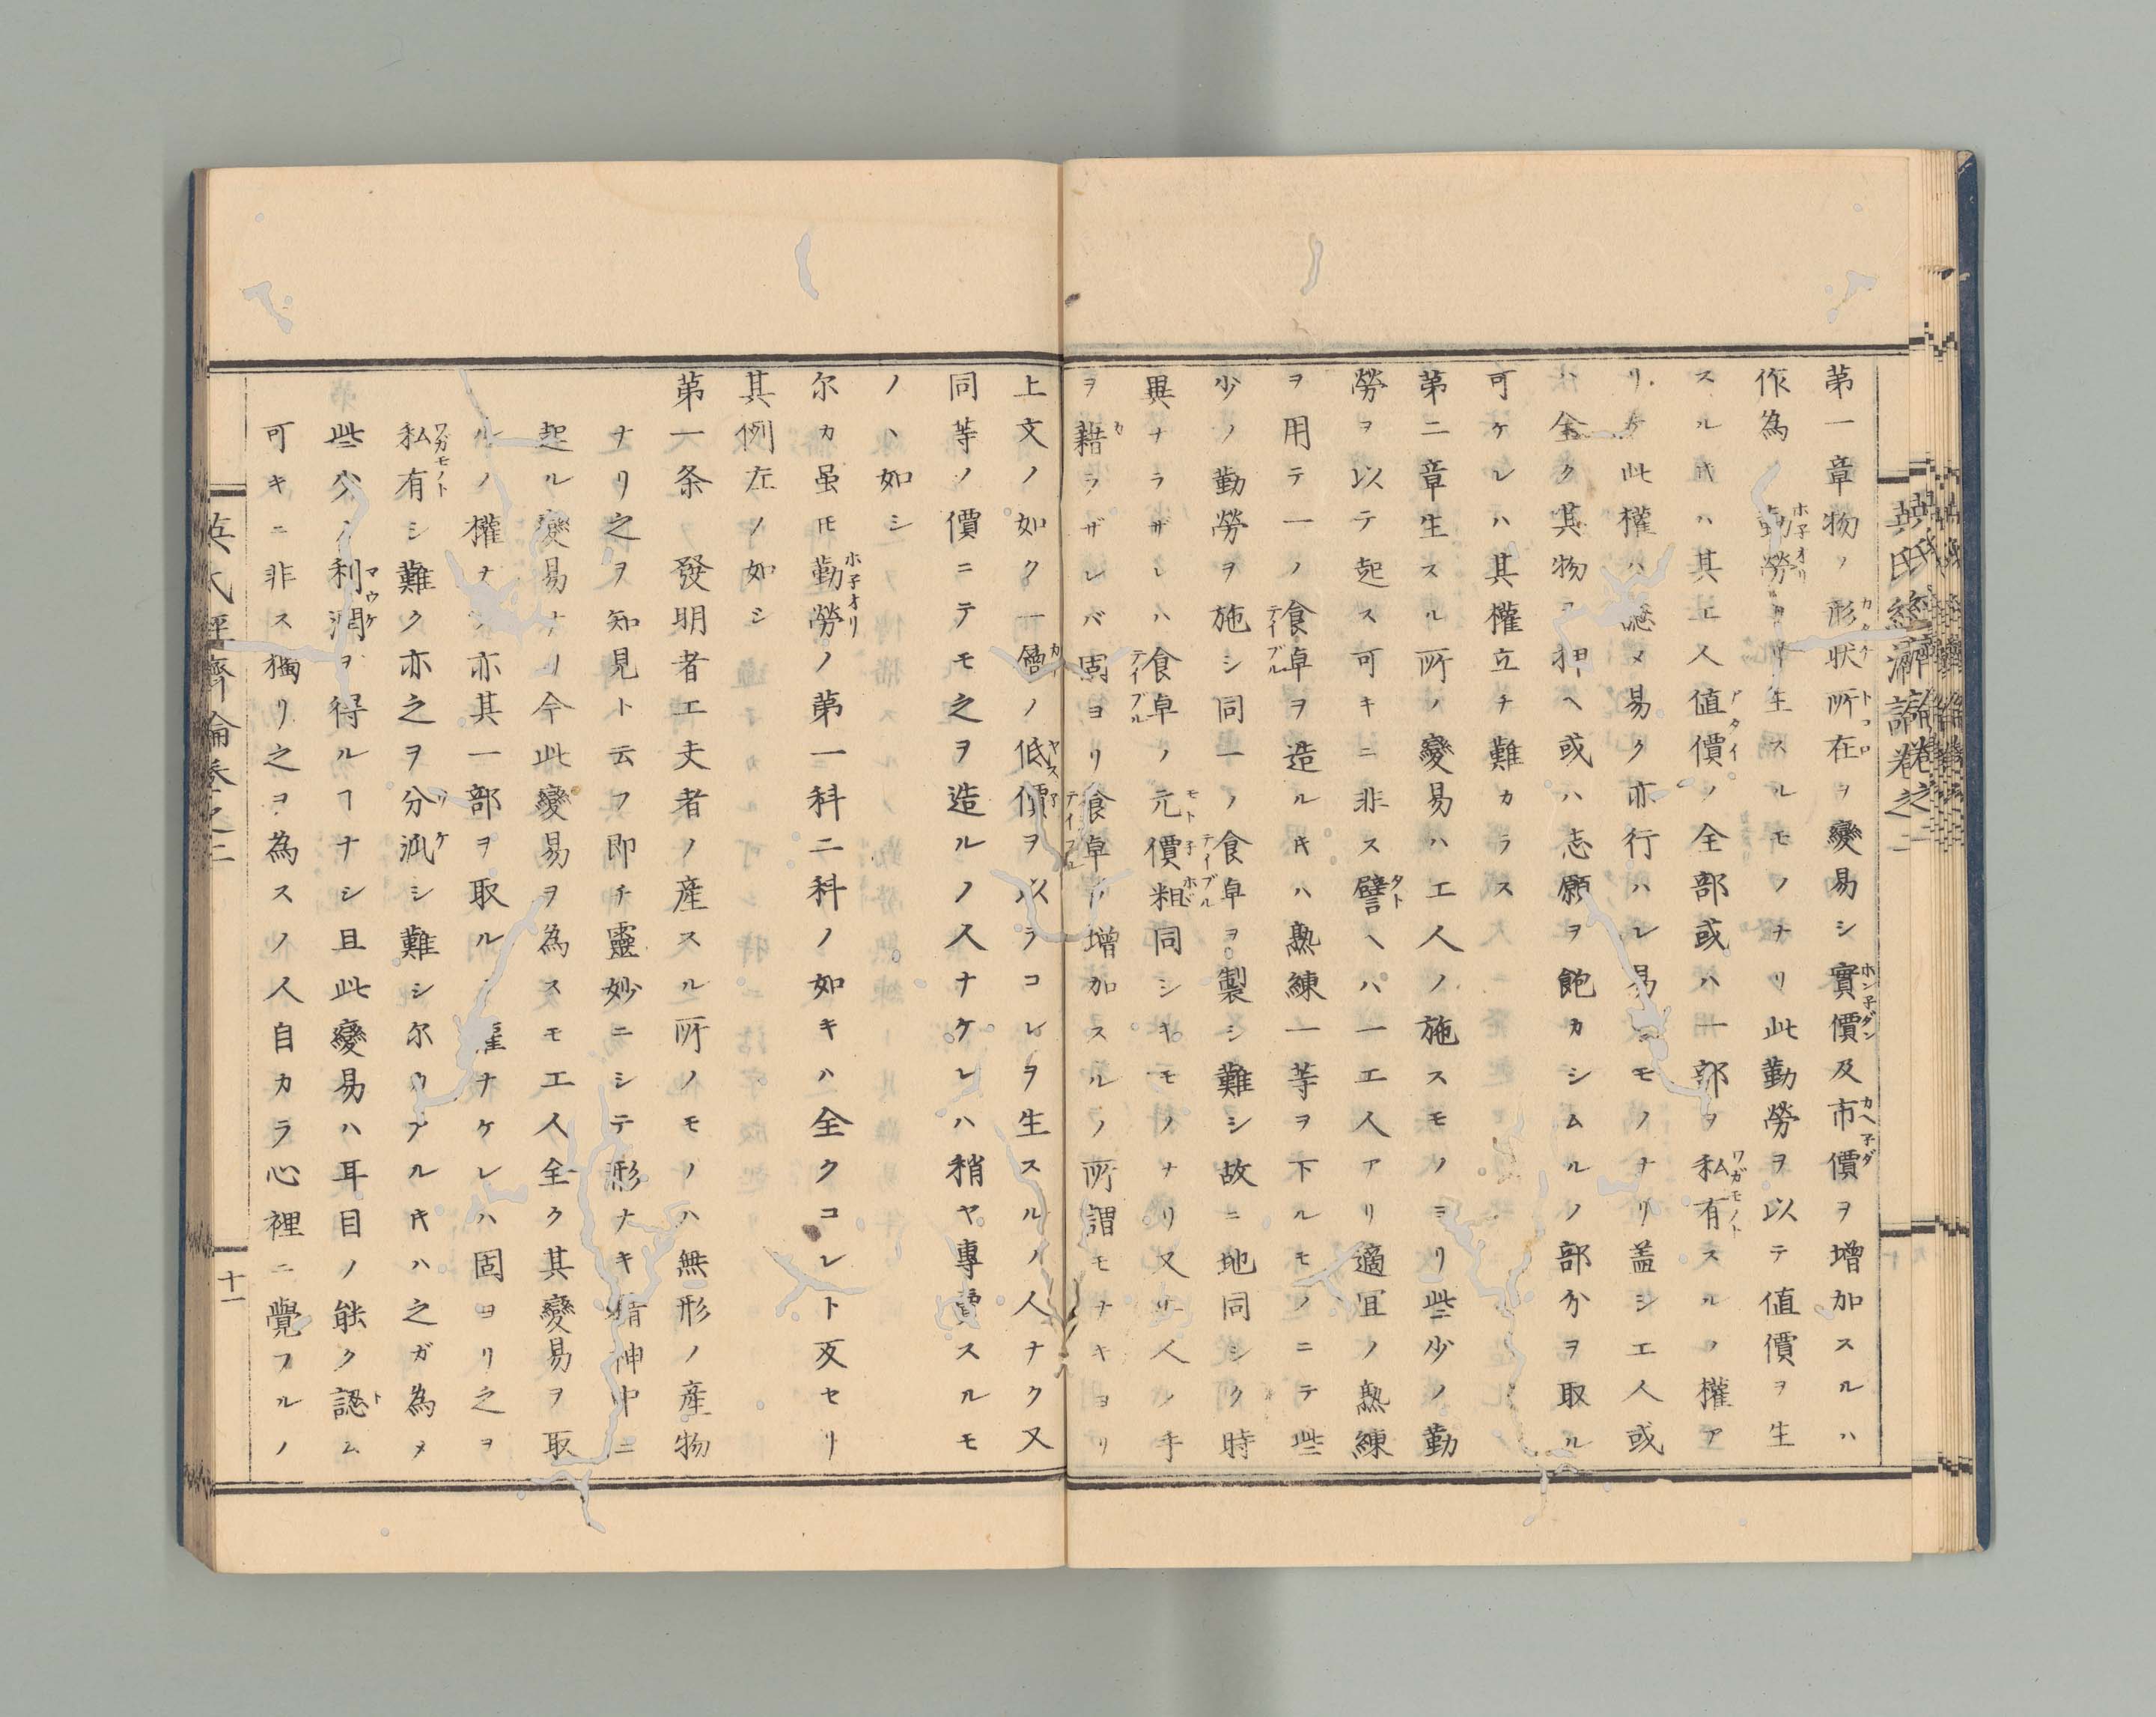 英氏經濟論卷之二
第一章物ノ形状所在ヲ變易シ實價及市價ヲ増加スルハ
作為 勤勞ヨリ生スルモノナリ此勤勞ヲ以テ値價ヲ生
スル𪜈ハ其工人値價ノ全部或ハ一部ヲ私有スルノ權ア
リ 此權ハ認メ易ク亦行ハレ易 モノナリ蓋シ工人或
ハ全ク其物ヲ押ヘ或ハ志願ヲ飽カシムルノ部分ヲ取ル
可ケレハ其權立チ難カラス
第二章生スル所ノ變易ハ工人ノ施スモノヨリ些少ノ勤
勞ヲ以テ起ス可キニ非ス譬ヘハ一工人アリ適宜ノ熟練
ヲ用テ一ノ食卓ヲ造ル𪜈ハ熟練一等ヲ下ルモノニテ些
少ノ勤勞ヲ施シ同一ノ食卓ヲ製シ難シ故ニ地同シク時
異ナラザレハ食卓ノ元價粗同シキモノナリ又工人ノ手
ヲ藉ラザレバ固ヨリ食卓ノ増加スルノ所謂モナキヨリ
上文ノ如ク一層ノ低價ヲ以ラコレヲ生スルノ人ナク又
同等ノ價ニテモ之ヲ造ルノ人ナケレハ稍ヤ專賣スルモ
ノヽ如シ
尔カ虽𪜈勤勞ノ第一科二科ノ如キハ全クコレト反セリ
其例左ノ如シ
第一条 發明者工夫者ノ産スル所ノモノハ無形ノ産物
ナリ之ヲ知見ト云フ即チ靈妙ニシテ形ナキ精神中ニ
起ル變易ナリ今此變易ヲ為スモ工人全ク其變易ヲ取
ルノ權ナク亦其一部ヲ取ルノ權ナケレハ固ヨリ之ヲ
私有シ難ク亦之ヲ分泒シ難シ尔ウアル𪜈ハ之ガ為メ
些少ノ利潤ヲ得ルヿナシ且此變易ハ耳目ノ能ク認ム
可キニ非ス獨リ之ヲ為スノ人自カラ心裡ニ覺フルノ
英氏經濟論卷之二
十一